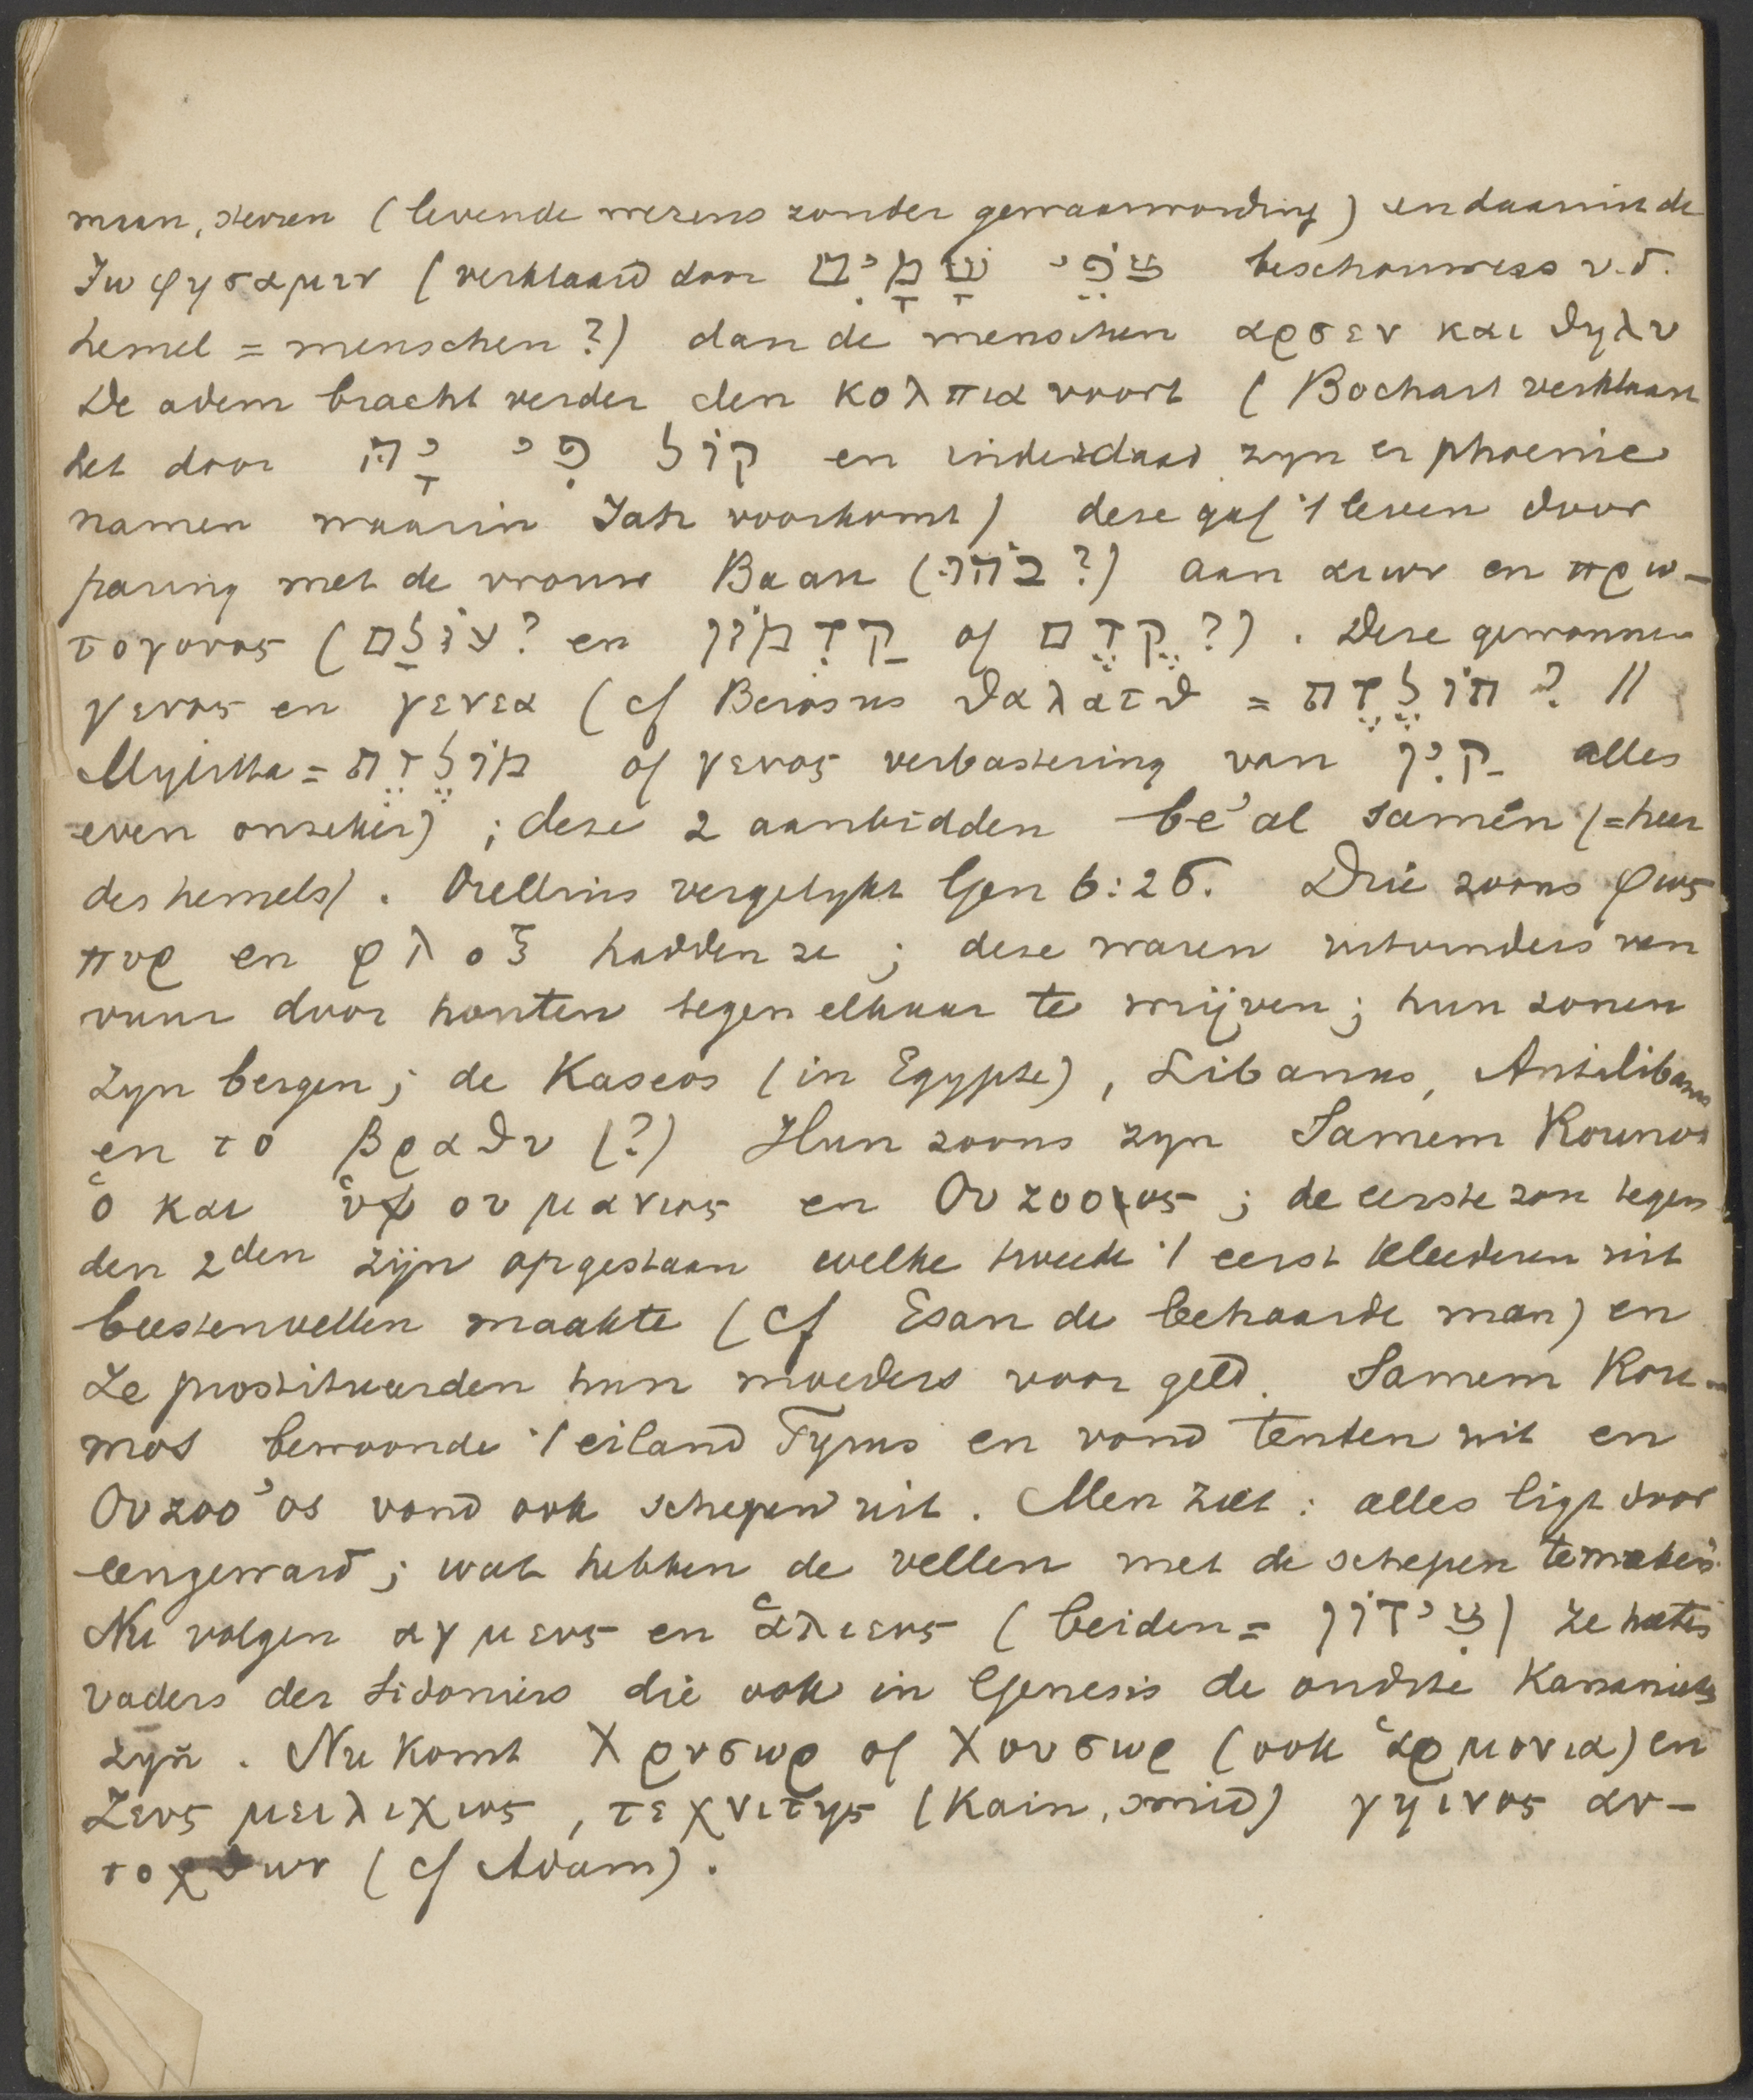 maan, sterren (levende wezens zonder gewaarwording) en daarin de
Ιωφησαμιν (verklaard door צֹפֵי שָׁמָיִם beschouwers v.d.
hemel = menschen?) dan de menschen αρσεν και θηλυ
De adem bracht verder den κολπια voort (Bochart verklaart
het door קוֹל פִּי יָהּ en inderdaad zyn er phoenic
namen waarin Jah voorkomt) deze gaf 't leven door
paring met de vrouw Baau (בֹהוּ?) aan αιων en πρω-
τογονος (עוֹלָם? en קַדְמוֹן of קֶדֶם?). Deze gewonnen
γενος en γενεα (cf Berosus θαλατθ = תוֹלֶדֶת? //
Mylitta = מוֹלֶדֶת of γενος verbastering van קַיִן alles
even onzeker); deze 2 aanbidden be'al samên (= heer
des hemels). Orellius vergelykt Gen 6:26. Drie zoons φως
πυρ en φλοξ hadden ze; deze waren uitvinders van
vuur door houten tegen elkaar te wrijven; hun zonen
zyn bergen; de Kaseos (in Egypte), Libanus, Antilibanus
en το βραθυ (?) Hun zoons zyn Samem Roumos
ὁ και ὑψουρανιος en Ουzooος; de eerste zou tegen
den 2den zijn opgestaan welke tweede 't eerst kleederen uit
beestenvellen maakte (cf Esau de behaarde man) en
ze prostitueerden hun moeders voor geld. Samem Rou-
mos bewoonde 't eiland Tyrus en vond tenten uit en
Ουzoo'os vond ook schepen uit. Men ziet: alles ligt door
eengeward; wat hebben de vellen met de schepen te maken.
Nu volgen αγρευς en ἁλιευς (beiden = צִידוֹן) ze heten
vaders der Sidoniers die ook in Genesis de oudste Kananiets
zyn. Nu komt Χρυσωρ of Χουσωρ (ook ἁρμονια) en
Ζευς μειλιχιος, τεχνιτης (Kain, smid) γηινος αυ-
τοχθων (cf Adam).